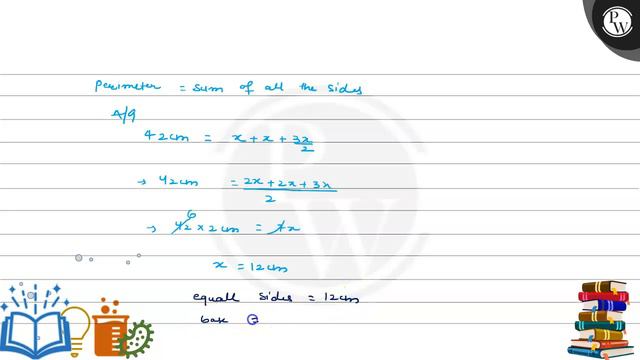 P
W
perimeter = sum of all the sides
A/q
42cm = x + x + 3x/2
→ 42cm = 2x + 2x + 3x / 2
→ 42 6 × 2cm = 7x
x = 12cm
equall sides = 12cm
base =